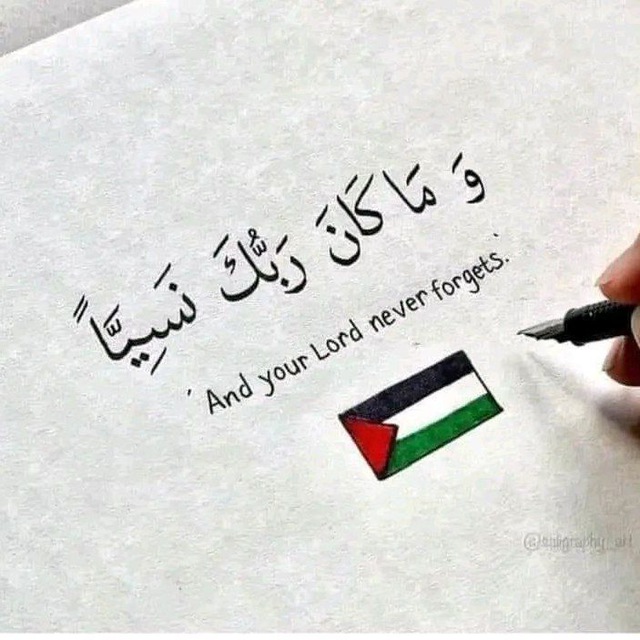 وَ مَا كَانَ رَبُّكَ نَسِيًّا
'And your Lord never forgets.'